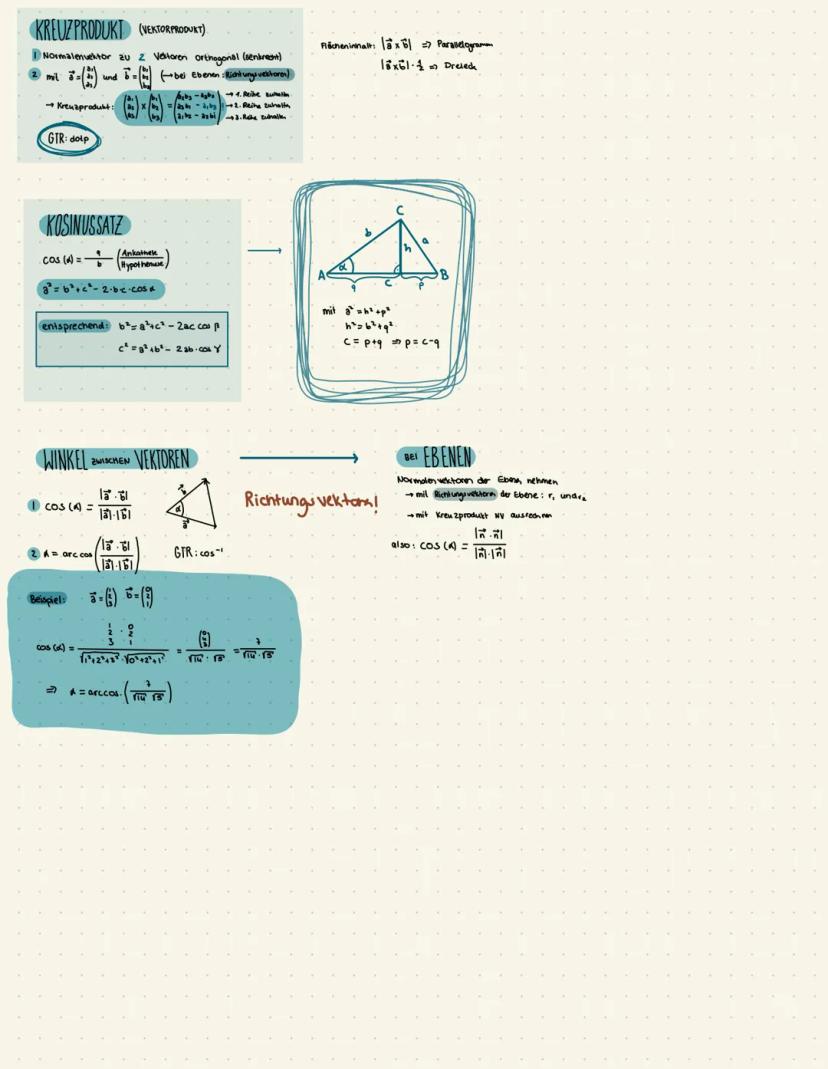 KREUZPRODUKT (VEKTORPRODUKT)
1 Normalenvektor zu 2 Vektoren Orthogonal (senkrecht)
2 mit a⃗ = (a₁ a₂ a₃) und b⃗ = (b₁ b₂ b₃) (→ bei Ebenen: Richtungsvektoren)
→ Kreuzprodukt: (a₁ a₂ a₃) × (b₁ b₂ b₃) = (a₂b₃ − a₃b₂ a₃b₁ − a₁b₃ a₁b₂ − a₂b₁)
→ 1. Reihe zuhalten
→ 2. Reihe zuhalten
→ 3. Reihe zuhalten
GTR: dotp
Flächeninhalt: |a⃗ x b⃗| => Parallelogramm
|a⃗ x b⃗| · 1/2 => Dreieck
KOSINUSSATZ
cos (α) = q/b (Ankathete/Hypothenuse)
a² = b² + c² − 2·b·c·cos α
entsprechend: b² = a² + c² − 2ac cos β
c² = a² + b² − 2ab · cos γ
C
b
h
a
A
α
c
B
q
p
mit a² = h² + p²
h² = b² + q²
c = p + q => p = c − q
WINKEL ZWISCHEN VEKTOREN
1 cos (α) = |a⃗ · b⃗| / |a⃗| · |b⃗|
b⃗
α
a⃗
Richtungsvektoren!
2 α = arccos (|a⃗ · b⃗| / |a⃗| · |b⃗|)
GTR: cos⁻¹
BEI EBENEN
Normalenvektoren der Ebenen nehmen
→ mit Richtungsvektoren der Ebene: r₁ und r₂
→ mit Kreuzprodukt NV ausrechnen
also: cos (α) = |n⃗ · n⃗| / |n⃗| · |n⃗|
Beispiel: a⃗ = (1 2 3) b⃗ = (0 2 1)
cos (α) = (1 2 3) · (0 2 1) / √1²+2²+3² · √0²+2²+1² = (0 4 3) / √14 · √5 = 7 / √14 · √5
=> α = arccos · (7 / √14 · √5)